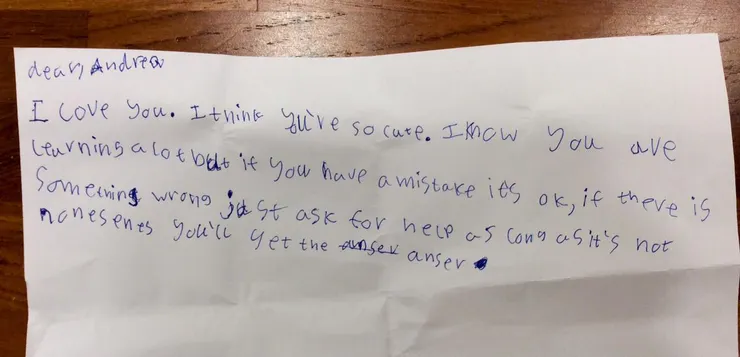 dear, Andrea
I Love you. I think you're so cute. I know you are
learning a lot but if you have a mistake it's ok, if there is
something wrong just ask for help as long as it's not
nonesents you'll get the anser anser